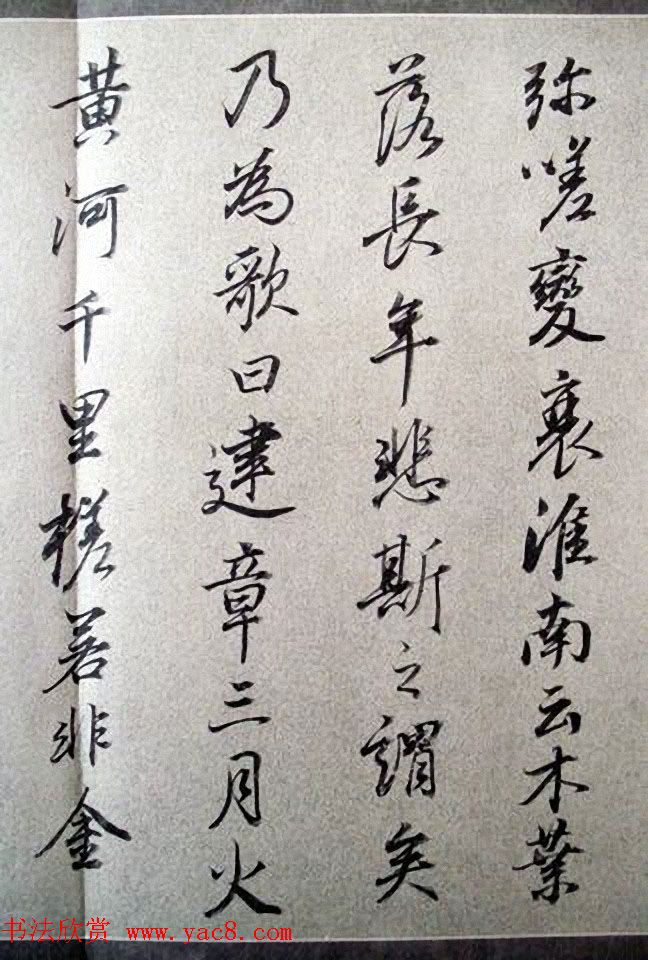 弥嗟變衰淮南云木葉
落長年悲斯之謂矣
乃為歌曰建章三月火
黄河千里槎若非金
书法欣赏 www.yac8.com